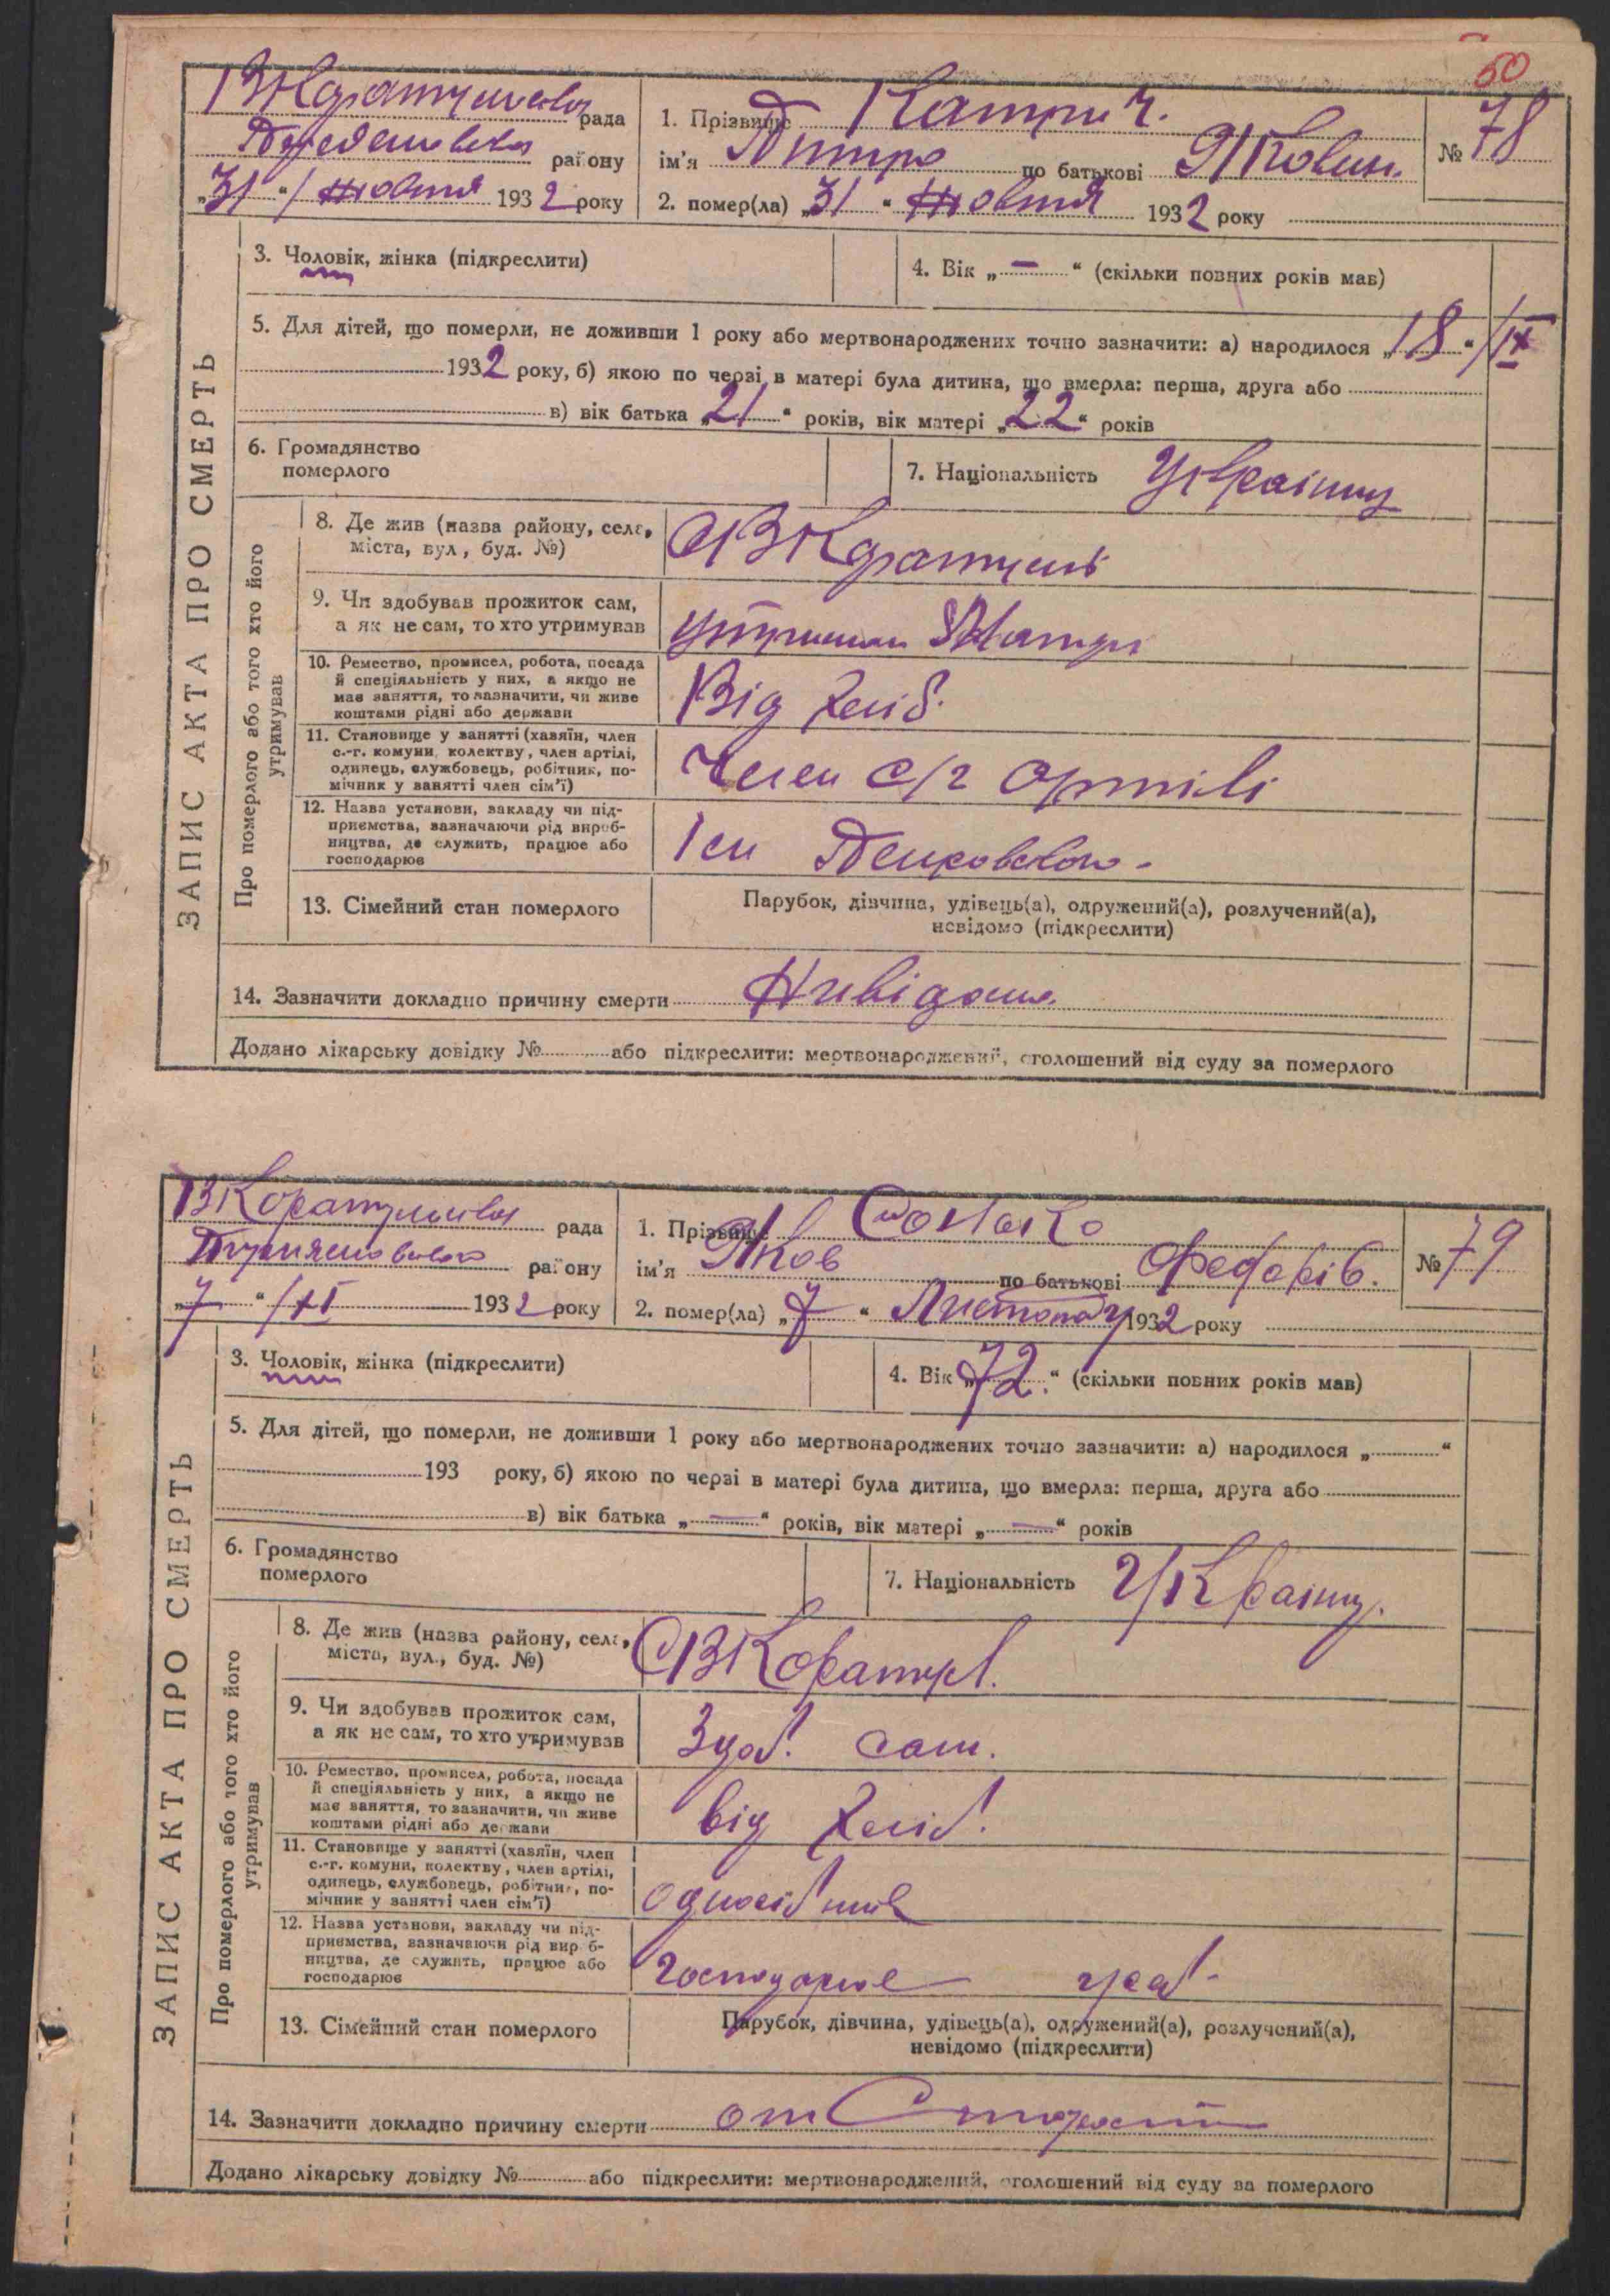 60
рада
району
„31“ / Жовтня 1932 року
1. Прізвище Катрич.
ім'я Дмитро по батькові Якович.
2. помер(ла) „31“ Жовтня 1932 року
№ 78
ЗАПИС АКТА ПРО СМЕРТЬ
3. Чоловік, жінка (підкреслити)
4. Вік „—“ (скільки повних років мав)
5. Для дітей, що померли, не доживши 1 року або мертвонароджених точно зазначити: а) народилося „18“/IX
1932 року, б) якою по черзі в матері була дитина, що вмерла: перша, друга або
в) вік батька „21“ років, вік матері „22“ років
6. Громадянство
померлого
7. Національність Українц
Про померлого або того хто його
утримував
8. Де жив (назва району, села,
міста, вул., буд. №)
9. Чи здобував прожиток сам,
а як не сам, то хто утримував
10. Ремество, промисел, робота, посада
й спеціяльність у них, а якщо не
має заняття, то зазначити, чи живе
коштами рідні або держави
Від хліб.
11. Становище у занятті (хазяїн, член
с.-г. комуни, колективу, член артілі,
одинець, службовець, робітник, по-
мічник у занятті член сім'ї)
Член с/г артілі
12. Назва установи, закладу чи під-
приємства, зазначаючи рід вироб-
ництва, де служить, працює або
господарює
Ім
13. Сімейний стан померлого
Парубок, дівчина, удівець(а), одружений(а), розлучений(а),
невідомо (підкреслити)
14. Зазначити докладно причину смерти Нивідома
Додано лікарську довідку № або підкреслити: мертвонароджений, оголошений від суду за померлого
рада
району
„7“ /XI 1932 року
1. Прізвище
ім'я Яков по батькові Федорів.
2. помер(ла) „7“ Листопад 1932 року
№ 79
ЗАПИС АКТА ПРО СМЕРТЬ
3. Чоловік, жінка (підкреслити)
4. Вік „72.“ (скільки повних років мав)
5. Для дітей, що померли, не доживши 1 року або мертвонароджених точно зазначити: а) народилося „“
193 року, б) якою по черзі в матері була дитина, що вмерла: перша, друга або
в) вік батька „—“ років, вік матері „—“ років
6. Громадянство
померлого
7. Національність Українц.
Про померлого або того хто його
утримував
8. Де жив (назва району, села,
міста, вул., буд. №)
9. Чи здобував прожиток сам,
а як не сам, то хто утримував
Здоб. сам.
10. Ремество, промисел, робота, посада
й спеціяльність у них, а якщо не
має заняття, то зазначити, чи живе
коштами рідні або держави
від хліб.
11. Становище у занятті (хазяїн, член
с.-г. комуни, колективу, член артілі,
одинець, службовець, робітник, по-
мічник у занятті член сім'ї)
односібник
12. Назва установи, закладу чи під-
приємства, зазначаючи рід вироб-
ництва, де служить, працює або
господарює
господарює
13. Сімейний стан померлого
Парубок, дівчина, удівець(а), одружений(а), розлучений(а),
невідомо (підкреслити)
14. Зазначити докладно причину смерти от Старости
Додано лікарську довідку № або підкреслити: мертвонароджений, оголошений від суду за померлого